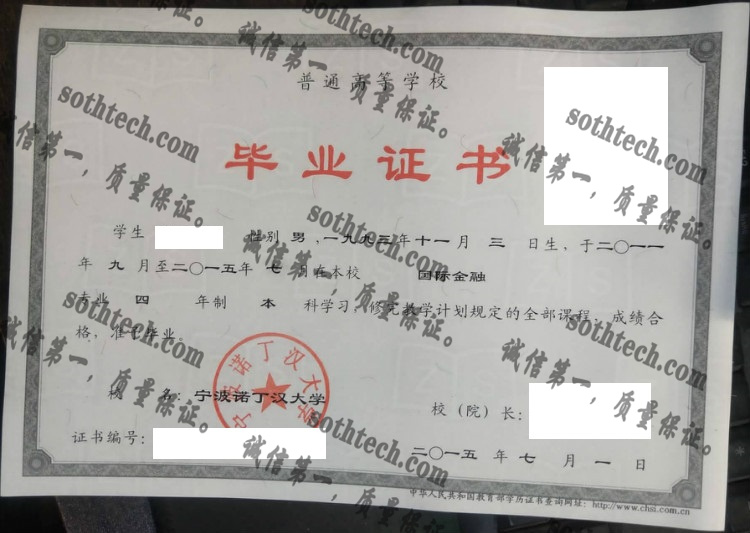 普通高等学校
毕业证书
学生 性别 男 ，一九九三年十一月 三 日生，于二〇一一
年 九 月至二〇一五年 七 月在本校 国际金融
专业 四 年制 本 科学习，修完教学计划规定的全部课程，成绩合
格，准予毕业。
校 名：宁波诺丁汉大学
校（院）长：
证书编号：
二〇一五 年 七 月 一 日
中华人民共和国教育部学历证书查询网址：http://www.chsi.com.cn
宁波诺丁汉大学
sothtech.com
诚信第一，质量保证。
sothtech.com
诚信第一，质量保证。
sothtech.com
诚信第一，质量保证。
sothtech.com
诚信第一，质量保证。
sothtech.com
诚信第一，质量保证。
sothtech.com
诚信第一，质量保证。
sothtech.com
诚信第一，质量保证。
sothtech.com
诚信第一，质量保证。